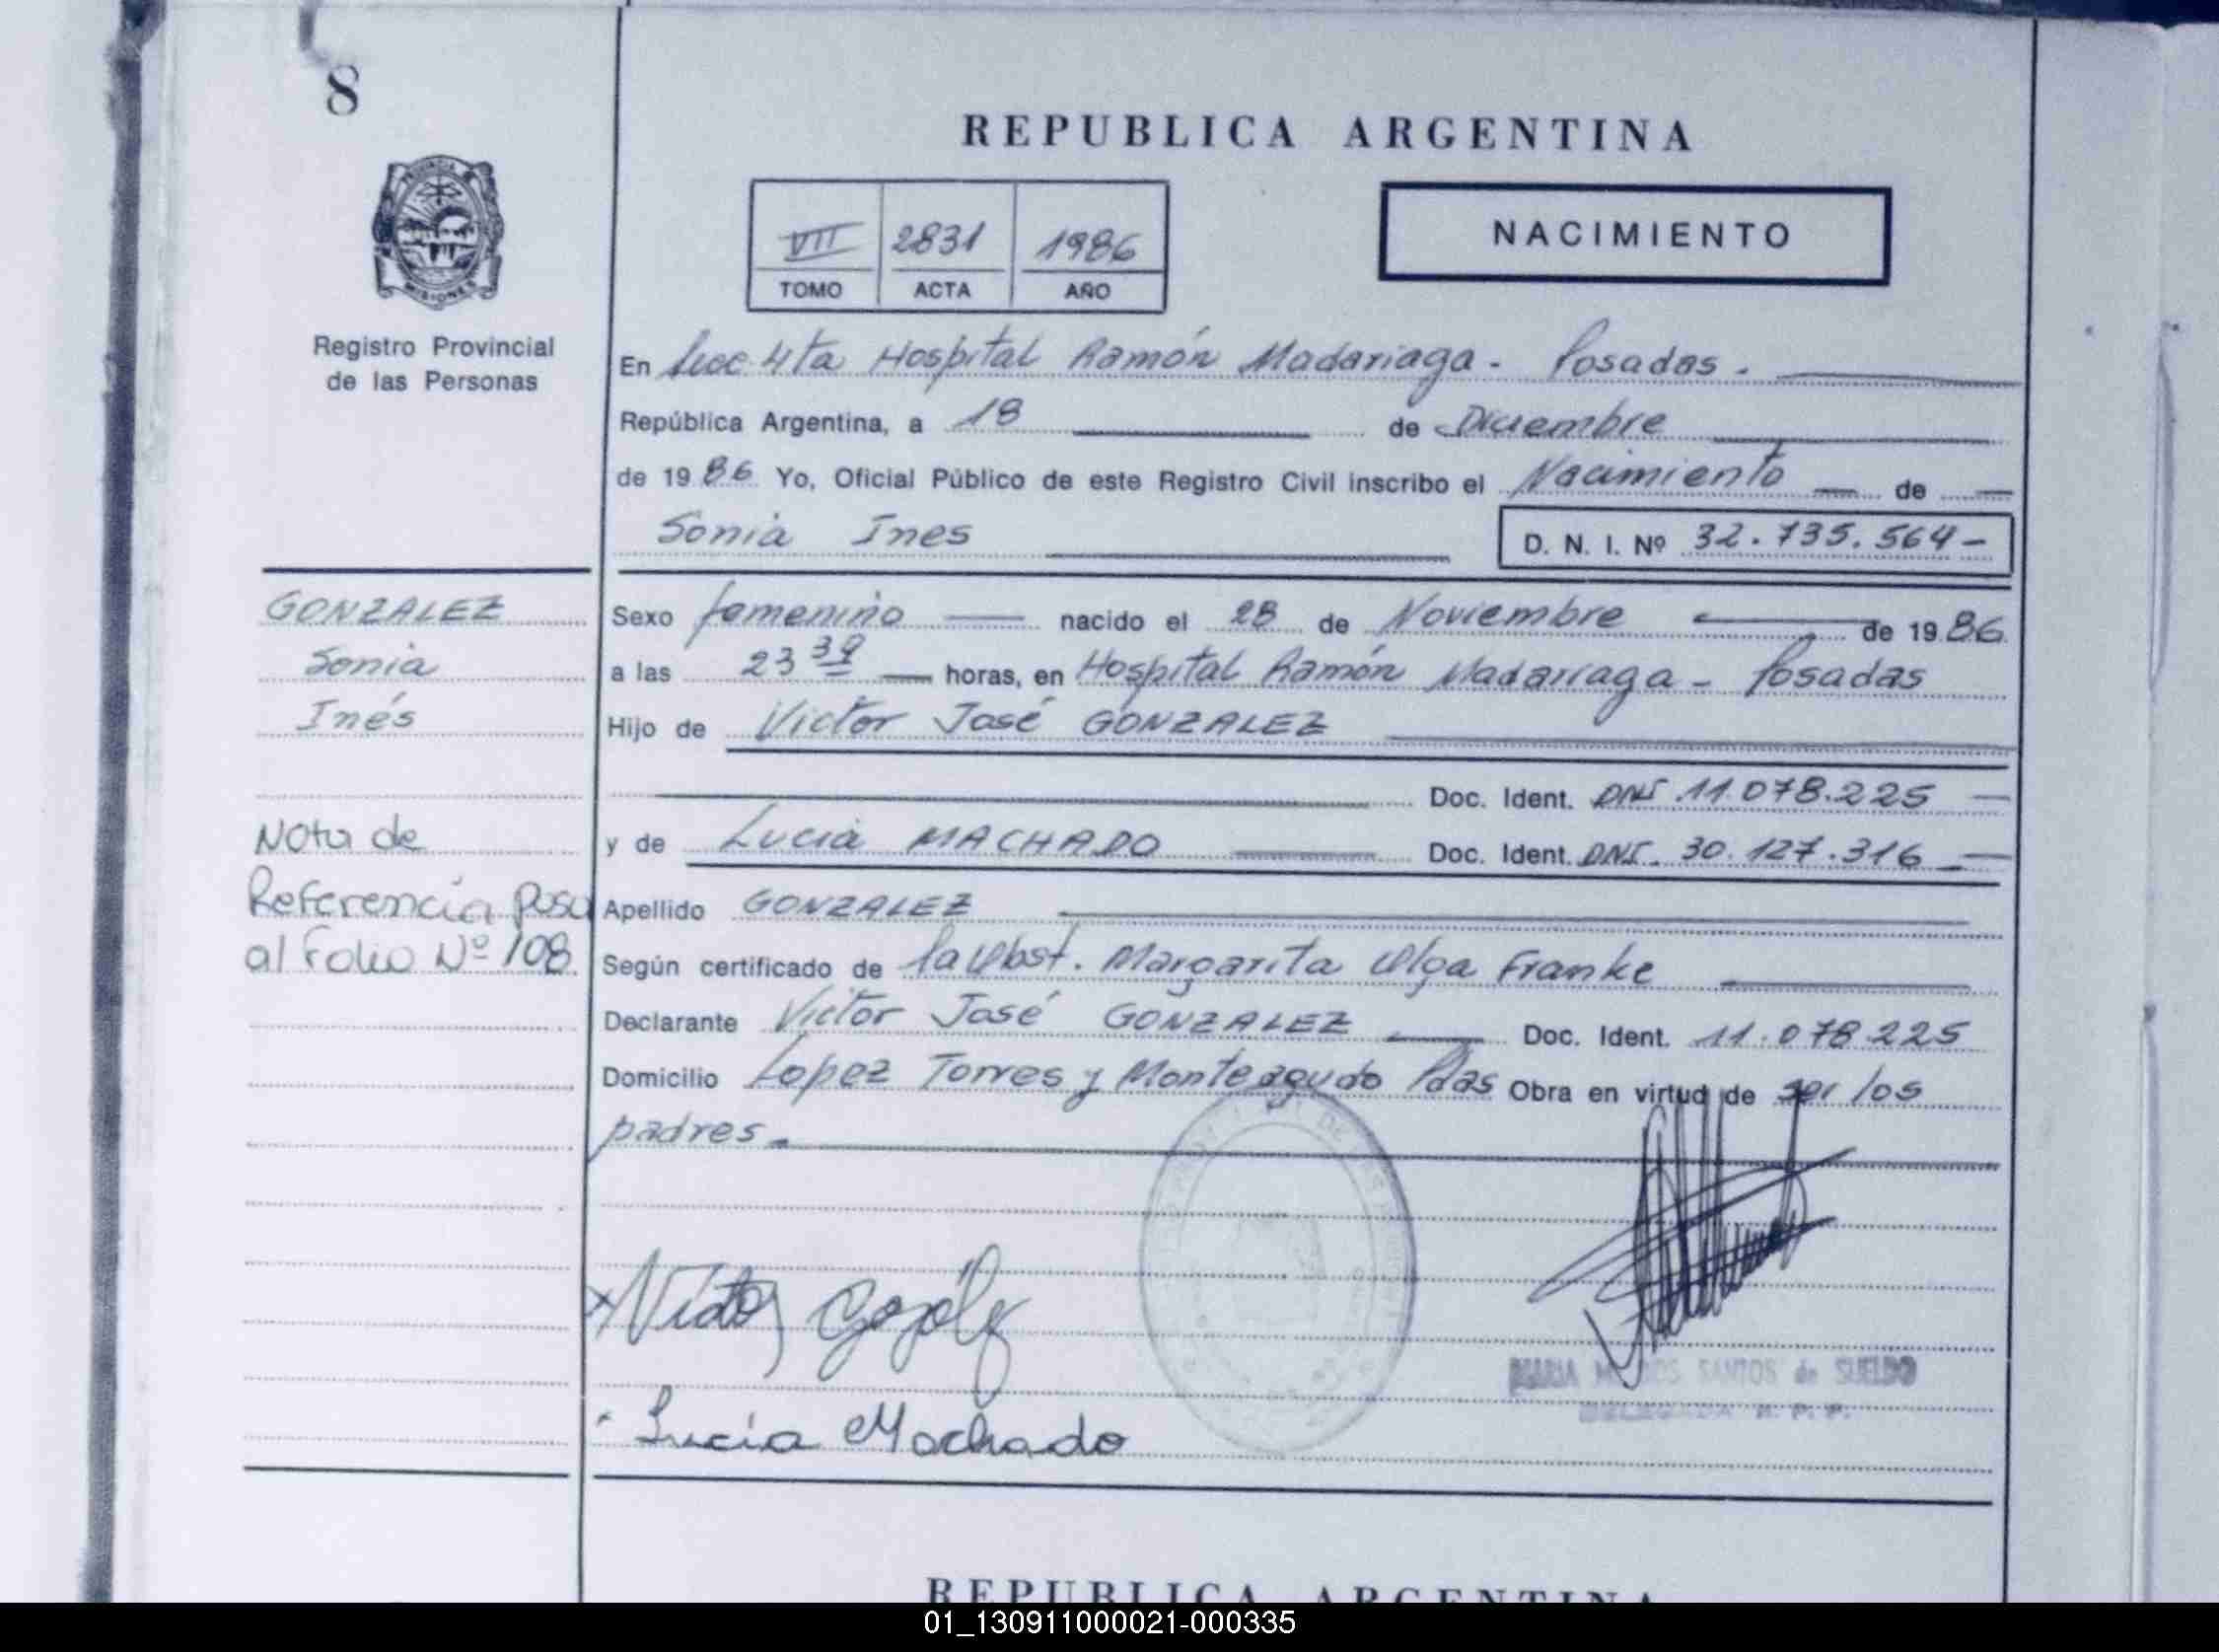 8
REPUBLICA ARGENTINA
VII 2831 1986
TOMO ACTA AÑO
NACIMIENTO
MISIONES
Registro Provincial
de las Personas
En Secc. 4ta Hospital Ramón Madariaga - Posadas.
República Argentina, a 18 de Diciembre
de 1986 Yo, Oficial Público de este Registro Civil inscribo el Nacimiento de
Sonia Ines D. N. I. Nº 32.735.564-
GONZALEZ
Sonia
Inés
Sexo femenino nacido el 28 de Noviembre de 1986
a las 23 39 horas, en Hospital Ramón Madariaga - Posadas
Hijo de Victor José GONZALEZ
Doc. Ident. DNI 11.078.225
y de Lucia MACHADO Doc. Ident. DNI. 30.127.316
Nota de
Referencia pasa
al Folio Nº 108
Apellido GONZALEZ
Según certificado de la Obst. Margarita Olga Franke
Declarante Victor José GONZALEZ Doc. Ident. 11.078.225
Domicilio Lopez Torres y Monteagudo Pdas Obra en virtud de ser los
padres.
Lucía Machado
MARIA SANTOS de SUELDO
DELEGADA R. P. P.
REPUBLICA ARGENTINA
01_130911000021-000335